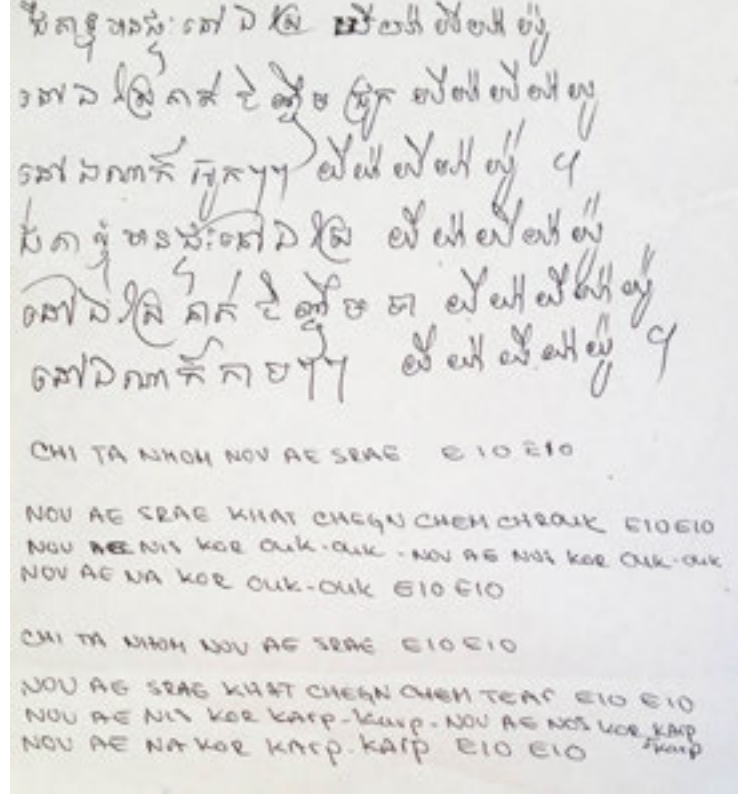 ជីតាខ្ញុំមានផ្ទះនៅឯស្រែ យីយ៉ា យីយ៉ា យ៉ូ
នៅឯស្រែគាត់ចិញ្ចឹមជ្រូក យីយ៉ា យីយ៉ា យ៉ូ
នៅឯណាក៏ អ៊ូកៗៗ យីយ៉ា យីយ៉ា យ៉ូ ។
ជីតាខ្ញុំមានផ្ទះនៅឯស្រែ យីយ៉ា យីយ៉ា យ៉ូ
នៅឯស្រែគាត់ចិញ្ចឹមទា យីយ៉ា យីយ៉ា យ៉ូ
នៅឯណាក៏កាបៗៗ យីយ៉ា យីយ៉ា យ៉ូ ។
CHI TA NHOM NOV AE SRAE E I O E I O
NOV AE SRAE KHAT CHEGN CHEM CHROUK E I O E I O
NOV AE NIS KOR OUK-OUK - NOV AE NOS KOR OUK-OUK
NOV AE NA KOR OUK-OUK E I O E I O
CHI TA NHOM NOV AE SRAE E I O E I O
NOV AE SRAE KHAT CHEGN CHEM TEAR E I O E I O
NOV AE NIS KOR KARP-KARP - NOV AE NOS KOR KARP-KARP
NOV AE NA KOR KARP-KARP E I O E I O